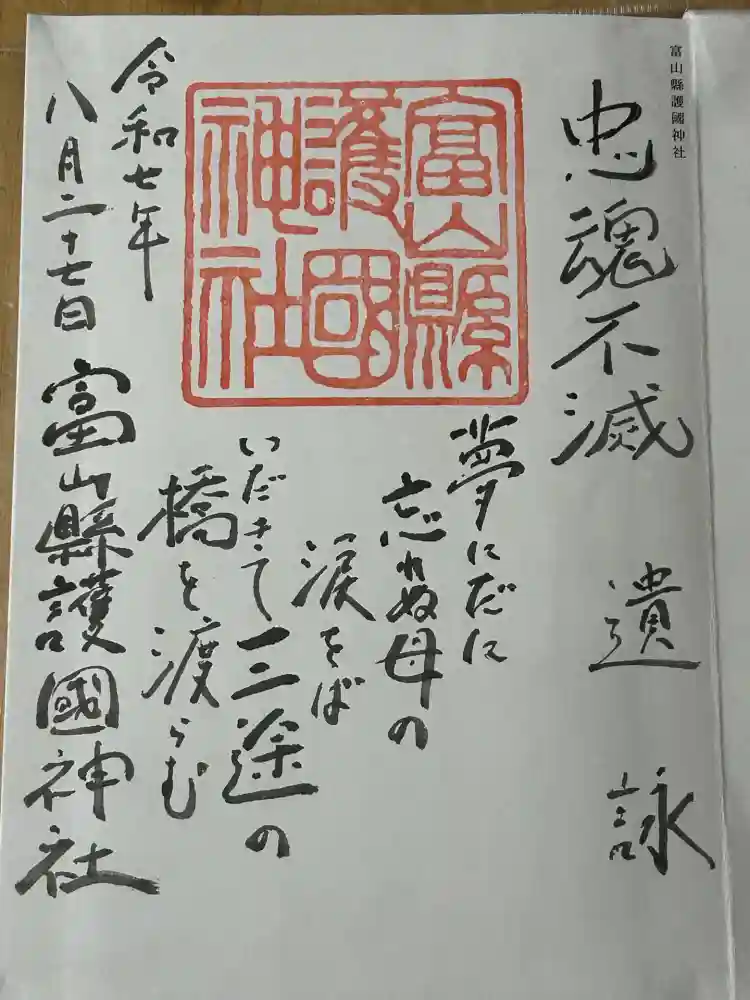 富山縣護國神社
忠魂不滅 遺詠
富山縣
護國
神社
夢にだに
忘れぬ母の
涙をば
いだきて三途の
橋を渡らむ
令和七年
八月二十七日 富山縣護國神社